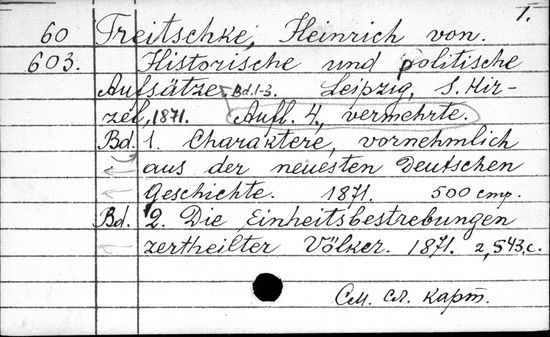 1.
60 Treitschke, Heinrich von.
603. Historische und politische
Aufsätze Bd. 1-3. Leipzig, S. Hir-
zel, 1871. Aufl. 4., vermehrte.
Bd. 1. Charaktere, vornehmlich
aus der neuesten Deutschen
Geschichte. 1871. 500 стр.
Bd. 2. Die Einheitsbestrebungen
zertheilter Völker. 1871. 2, 543, с.
См. сл. карт.